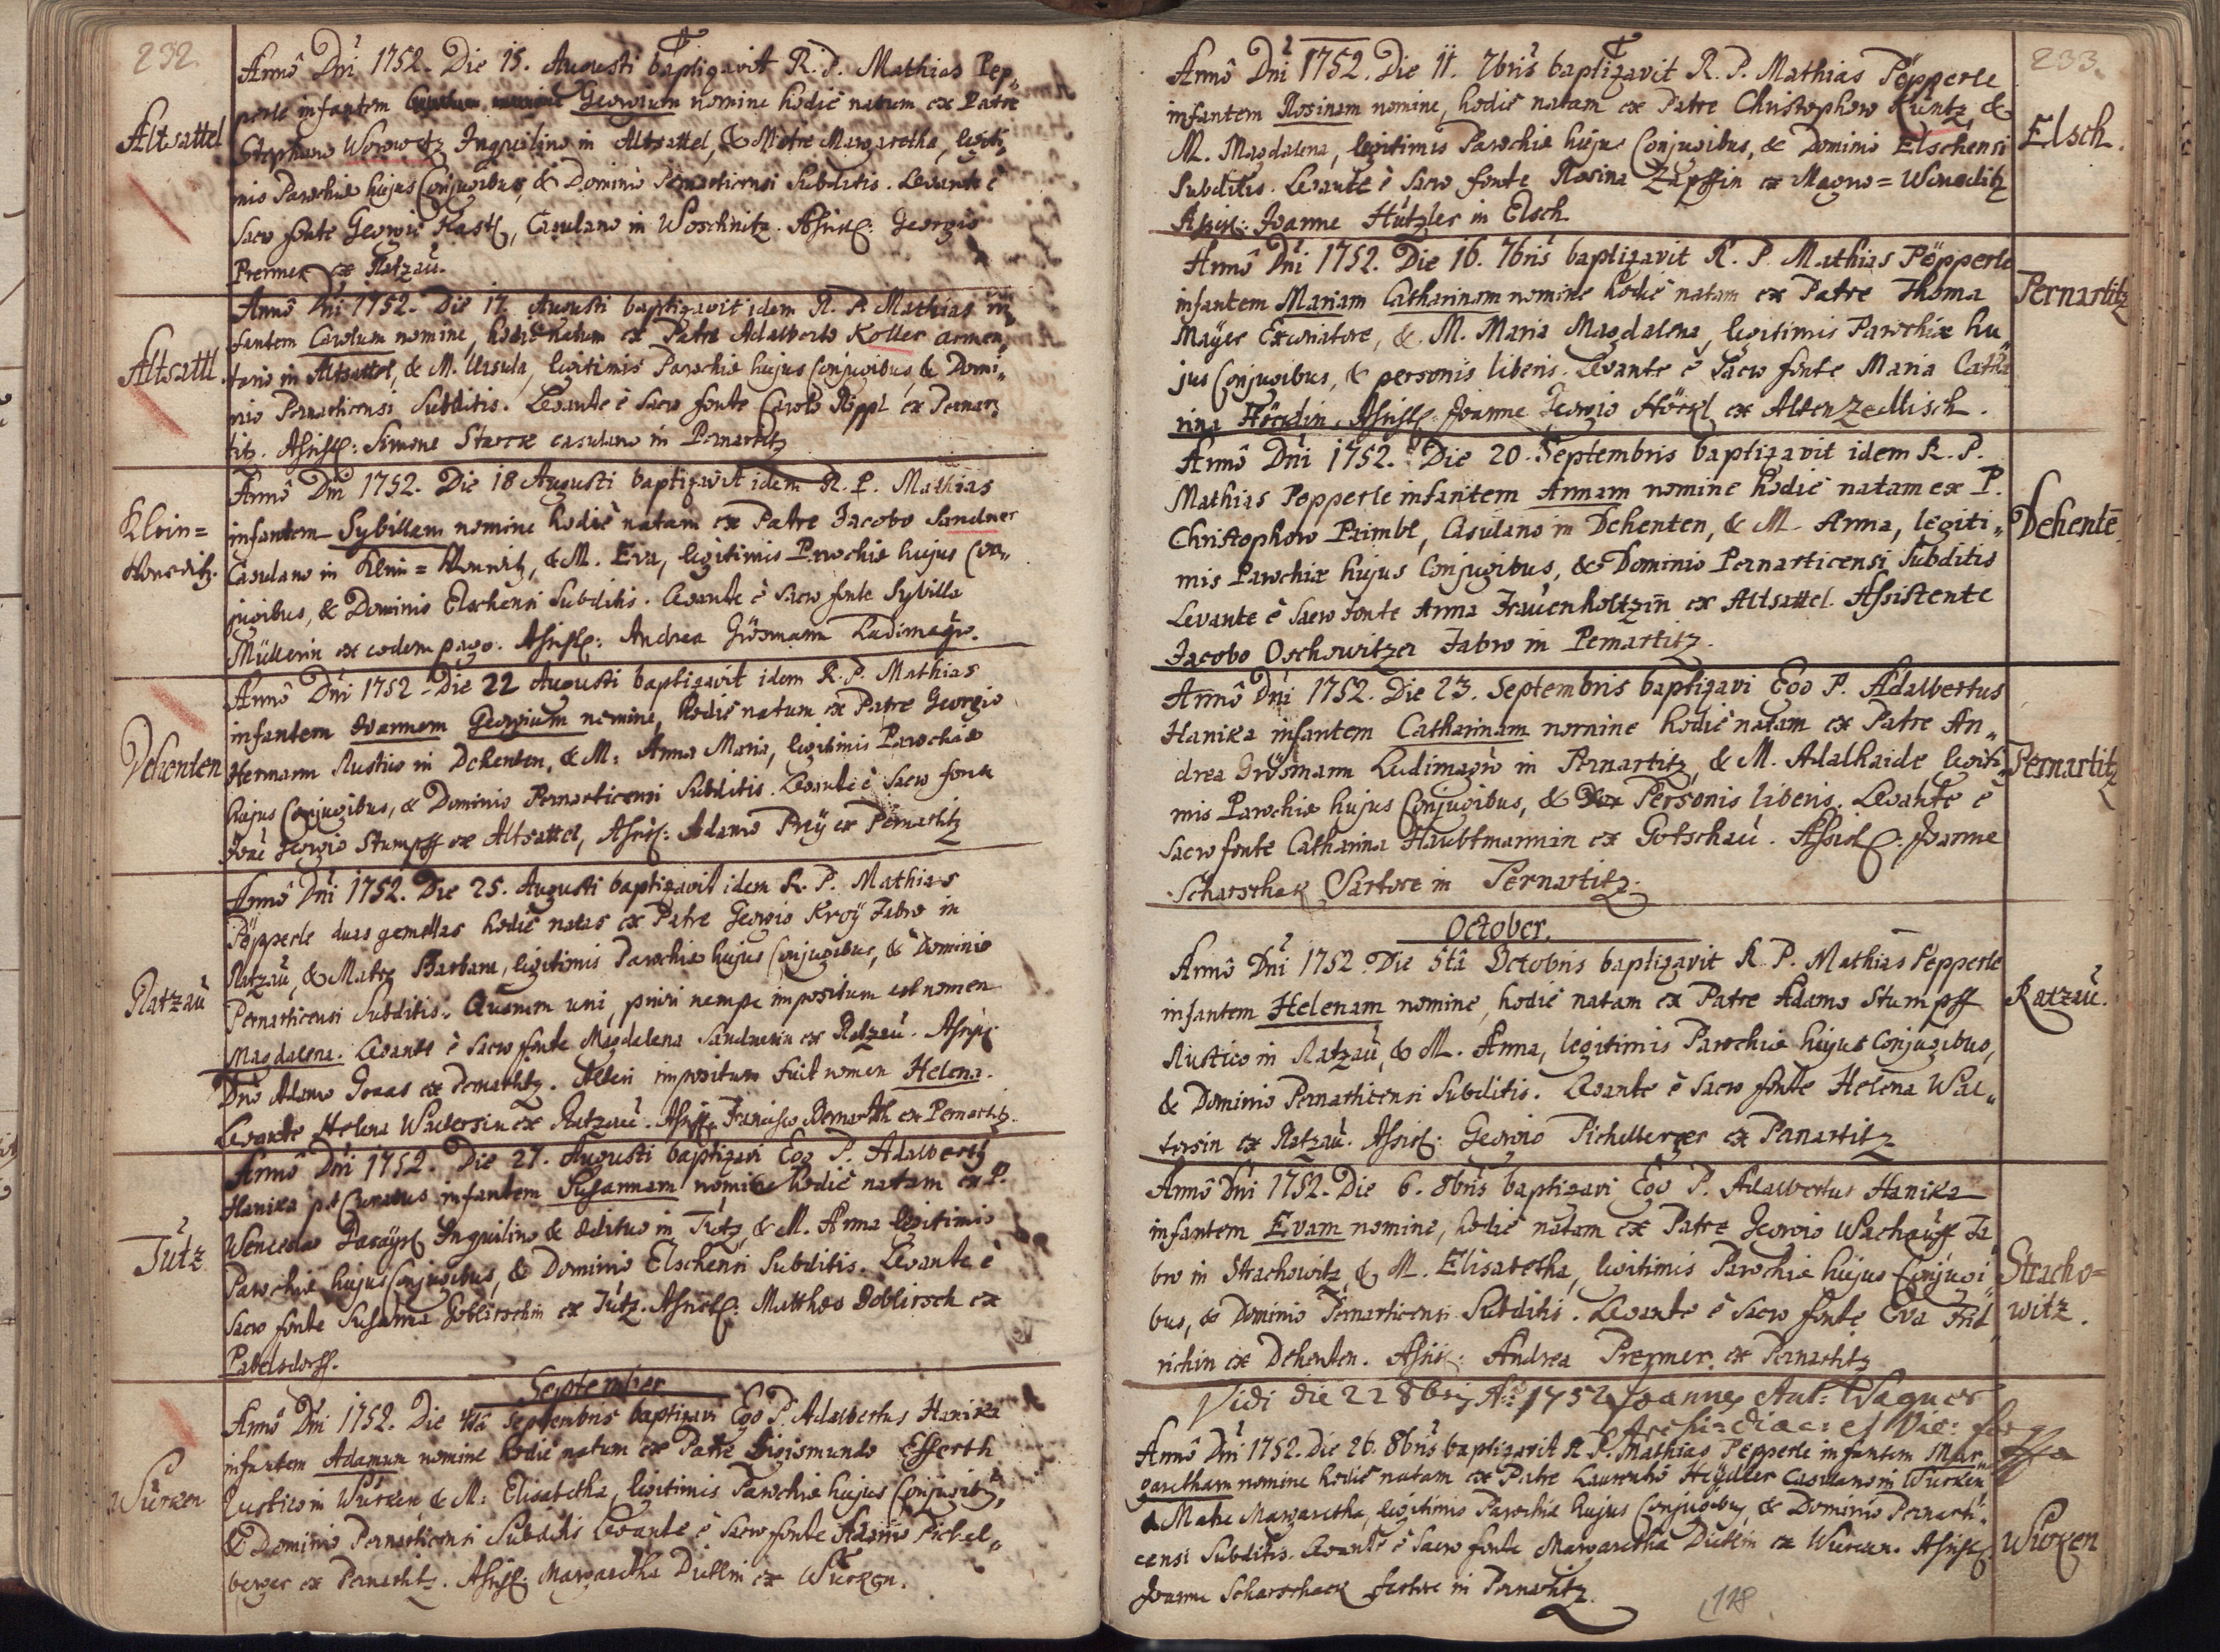 232.
Altsattel
Annô Dñi 1752. Die 15. Augusti baptizavit R. P. Mathias Pep„
perle infantem Georgium nomine hodiè natum ex Patre
Stephano Worowetz Inquilino in Altsattel, & Matre Margaretha, legiti„
mis Parochiæ hujus Conjugibus, & Dominio Pernarticensi Subditis. Levante è
Sacro fonte Georgio Kastl, Casulano in Woschnitz. Assist: Georgio
Prermer ex Ratzaù.
Altsattl.
Annô Dñi 1752. Die 17. Augusti baptizavit idem R. P. Mathias in„
fantem Carolum nomine, hodiè natum ex Patre Adalberto Koller armen„
tario in Altsattel, & M. Ursula, legitimis Parochiæ hujus Conjugibus, & Domi„
nio Pernarticensi Subditis. Levante è Sacro fonte Carolo Köppl ex Pernar„
titz. Assist: Simone Starck casulano in Pernartitz
Klein=
Wonetitz.
Annô Dñi 1752. Die 18 Augusti baptizavit idem R. P. Mathias
infantem Sybillam nomine hodiè natam ex Patre Jacobo Sandner
Casulano in Klein= & M. Eva, legitimis Parochiæ hujus Con„
jugibus, & Dominio Elschensi Subditis. Levante è Sacro fonte Sybilla
Müllerin ex eodem pago. Assist: Andrea Grösmann Ludimagro.
Dehenten
Annô Dñi 1752. Die 22 Augusti baptizavit idem R. P. Mathias
infantem Joannem Georgium nomine, hodiè natum ex Patre Georgio
Hermann Rustico in Dehenten, & M: Anna Maria, legitimis Parochiæ
hujus Conjugibus, & Dominio Pernarticensi Subditis. Levante è Sacro fonte
Joañe Georgio Stumpff ex Altsattel, Assist: Adamo Preÿ ex Pernartitz
Ratzaù
Annô Dñi 1752. Die 25. Augusti baptizavit idem R. P. Mathias
Pöpperle duas gemellas hodiè natas ex Patre Georgio Kroÿ Fabro in
Ratzaù, & Matre Barbara, legitimis Parochiæ hujus Conjugibus, & Dominio
Pernarticensi Subditis. Quarum uni, priori nempe impositum est nomen
Magdalena. Levante è Sacro fonte Magdalena Sandnerin ex Ratzaù. Assist:
Dño Adamo Graas ex Pernartitz. Alteri impositum fuit nomen Helena.
Levante Helena Waltersin ex Ratzaù. Assist: Francisco Bernardth ex Pernartitz.
Tùtz
Annô Dñi 1752. Die 27. Augusti baptizavi Ego P. Adalberty
Hanika p.t. Curatus infantem Susannam nomine hodiè natam ex P.
Wenceslao Inquilino & ædituo in Tùtz, & M. Anna legitimis
Parochiæ hujus Conjugibus, & Dominio Elschensi Subditis. Levante è
Sacro fonte Susanna Goblirschin ex Tùtz. Assist: Matthæo Goblirsch ex
Pabelsdorff.
September
Wùrken
Annô Dñi 1752. Die 4tâ Septembris baptizavi Ego P. Adalbertus Hanika
infantem Adamum nomine hodiè natum ex Patre Sigismundo Efferth
Rustico in Wùrken, & M: Elisabetha, legitimis Parochiæ hujus Conjugibus,
& Dominio Pernarticensi Subditis Levante è Sacro fonte Adamo Pichel„
berger ex Pernartitz. Assist: Margaretha Dietlin ex Wùrken.
233.
Elsch.
Annô Dñi 1752. Die 11. 7bris baptizavit R. P. Mathias Pöpperle
infantem Rosinam nomine, hodiè natam ex Patre Christophoro Kuntz, &
M. Magdalena, legitimis Parochiæ hujus Conjugibus, & Dominio Elschensi
Subditis. Levante è Sacro fonte Rosina Zapffin ex Magno=Wonetitz
Assist: Joanne Hùtzler in Elsch.
Pernartitz
Annô Dñi 1752. Die 16. 7bris baptizavit R. P. Mathias Pöpperle
infantem Mariam Catharinam nomine hodiè natam ex Patre Thoma
Mayer Excoriatore, & M. Maria Magdalena, legitimis Parochiæ hu„
jus Conjugibus, & personis liberis. Levante è Sacro fonte Maria Catha
rina Höcklin. Assist: Joanne Georgio Höckl ex Altenzedlisch.
Dehentē
Annô Dñi 1752. Die 20. Septembris baptizavit idem R. P.
Mathias Pepperle infantem Annam nomine hodiè natam ex P.
Christophoro Peimbl, Casulano in Dehenten, & M. Anna, legiti„
mis Parochiæ hujus Conjugibus, & Dominio Pernarticensi Subditis
Levante è Sacro fonte Anna Fraùenholtzin ex Altsattel. Assistente
Jacobo Oschowitzer Fabro in Pernartitz.
Pernartitz
Annô Dñi 1752. Die 23. Septembris baptizavi Ego P. Adalbertus
Hanika infantem Catharinam nomine hodiè natam ex Patre An„
drea Grösmann Ludimagrô in Pernartitz, & M. Adalhaide, legiti„
mis Parochiæ hujus Conjugibus, & Personis liberis. Levante è
Sacro fonte Catharina Haubtmannin ex Gotschaù. Assist: Joanne
Scharschak Sartore in Pernartitz.
October.
Ratzaù.
Annô Dñi 1752. Die 5tâ Octobris baptizavit R. P. Mathias Pepperle
infantem Helenam nomine, hodiè natam ex Patre Adamo Stumpff
Rustico in Ratzaù, & M. Anna, legitimis Parochiæ hujus Conjugibus,
& Dominio Pernarticensi Subditis. Levante è Sacro fonte Helena Wal„
tersin ex Ratzaù. Assist: Georgio Pichelberger ex Pernartitz
Stracho=
witz.
Annô Dñi 1752. Die 6. 8bris baptizavi Ego P. Adalbertus Hanika
infantem Evam nomine, hodiè natam ex Patre Georgio Wachaùff Fa
bro in Strachowitz & M. Elisabetha, legitimis Parochiæ hujus Conjugi
bus, & Dominio Pernarticensi Subditis. Levante è Sacro fonte Eva Frid„
richin ex Dehenten. Assist: Andrea Prermer ex Pernartitz
Vidi die 22 8bris Aō 1752 Joannes Ant: Wagner
Archi=diac: et Vic: for
Wùrken
Annô Dñi 1752. Die 26. 8bris baptizavit R. P. Mathias Pepperle infantem Mar„
garetham nomine hodiè natam ex Patre Laurentio Heÿdler Casulano in Wùrken
& Matre Margaretha, legitimis Parochiæ hujus Conjugibus, & Dominio Pernarti„
censi Subditis. Levante è Sacro fonte Margaretha Dietlin ex Wùrken. Assist:
Joanne Scharschack Sartore in Pernartitz.
118.